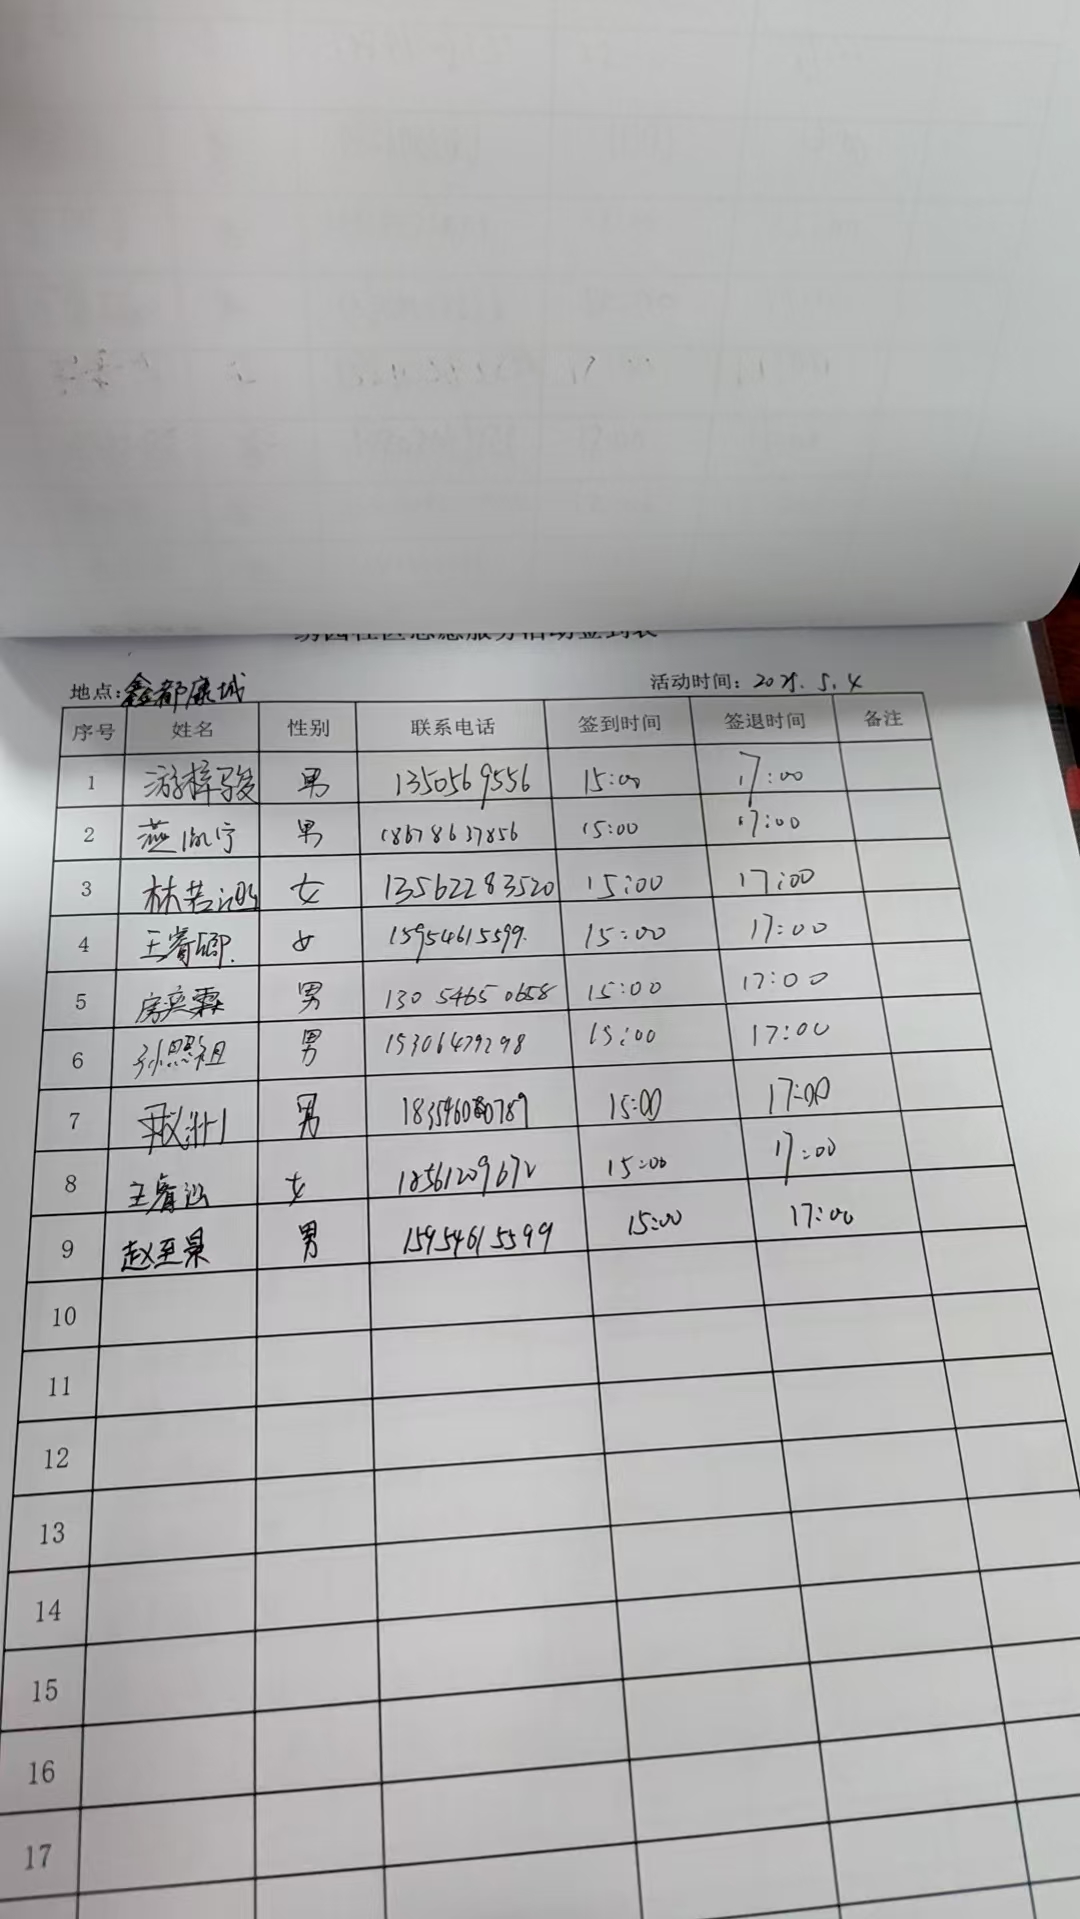 园社区志愿服务活动签到表
地点:鑫都康城 活动时间:2025.5.4
序号 姓名 性别 联系电话 签到时间 签退时间 备注
1 游梓骏 男 1350569556 15:00 17:00
2 燕 宁 男 18678637856 15:00 17:00
3 林若 女 13562283520 15:00 17:00
4 王睿卿. 女 15954615599. 15:00 17:00
5 房奕霖 男 130 5465 0658 15:00 17:00
6 孙照祖 男 15306479298 15:00 17:00
7 男 15:00 17:00
8 王睿泓 女 18561209672 15:00 17:00
9 赵至景 男 15954615599 15:00 17:00
10
11
12
13
14
15
16
17